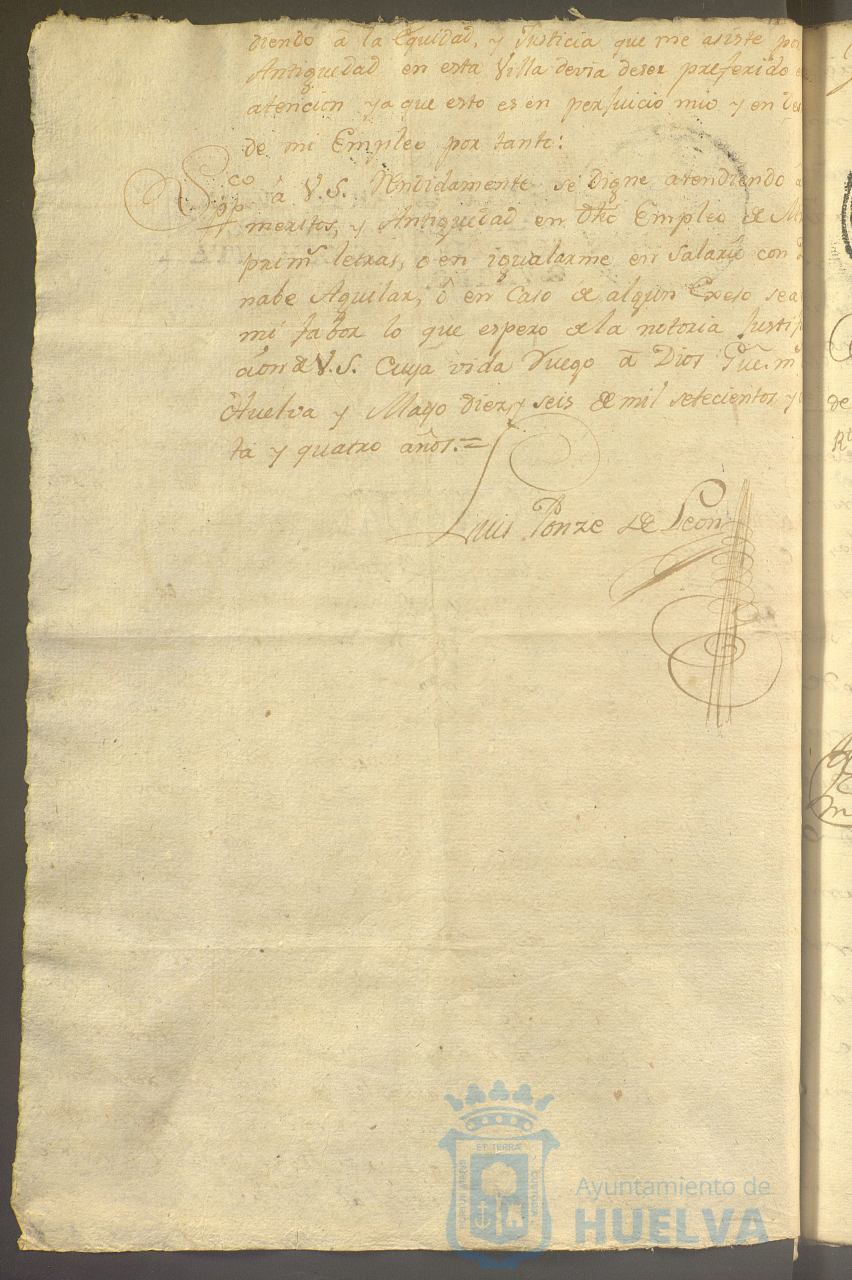 diendo â la Equidad, y Justicia que me asiste por
Antiguedad en esta Villa devia deser preferido
atencion ya que esto es en perjuicio mio y en
de mi Empleo por tanto:
Sppco â V.S. Rendidamente se digne atendiendo â
meritos, y Antiguedad en dho Empleo de
primˢ letras, o en igualarme en Salario con
nabe Aguilar, ô en Caso de algun Exeso sea
mi fabor lo que espero de la notoria Justifi
cion de V.S. Cuya vida Ruego â Dios Gue. mˢ
Huelva y Mayo diez y seis de mil setecientos y
ta y quatro años.=
Luis Ponze de Leon
ET TERRÆ
Ayuntamiento de
HUELVA